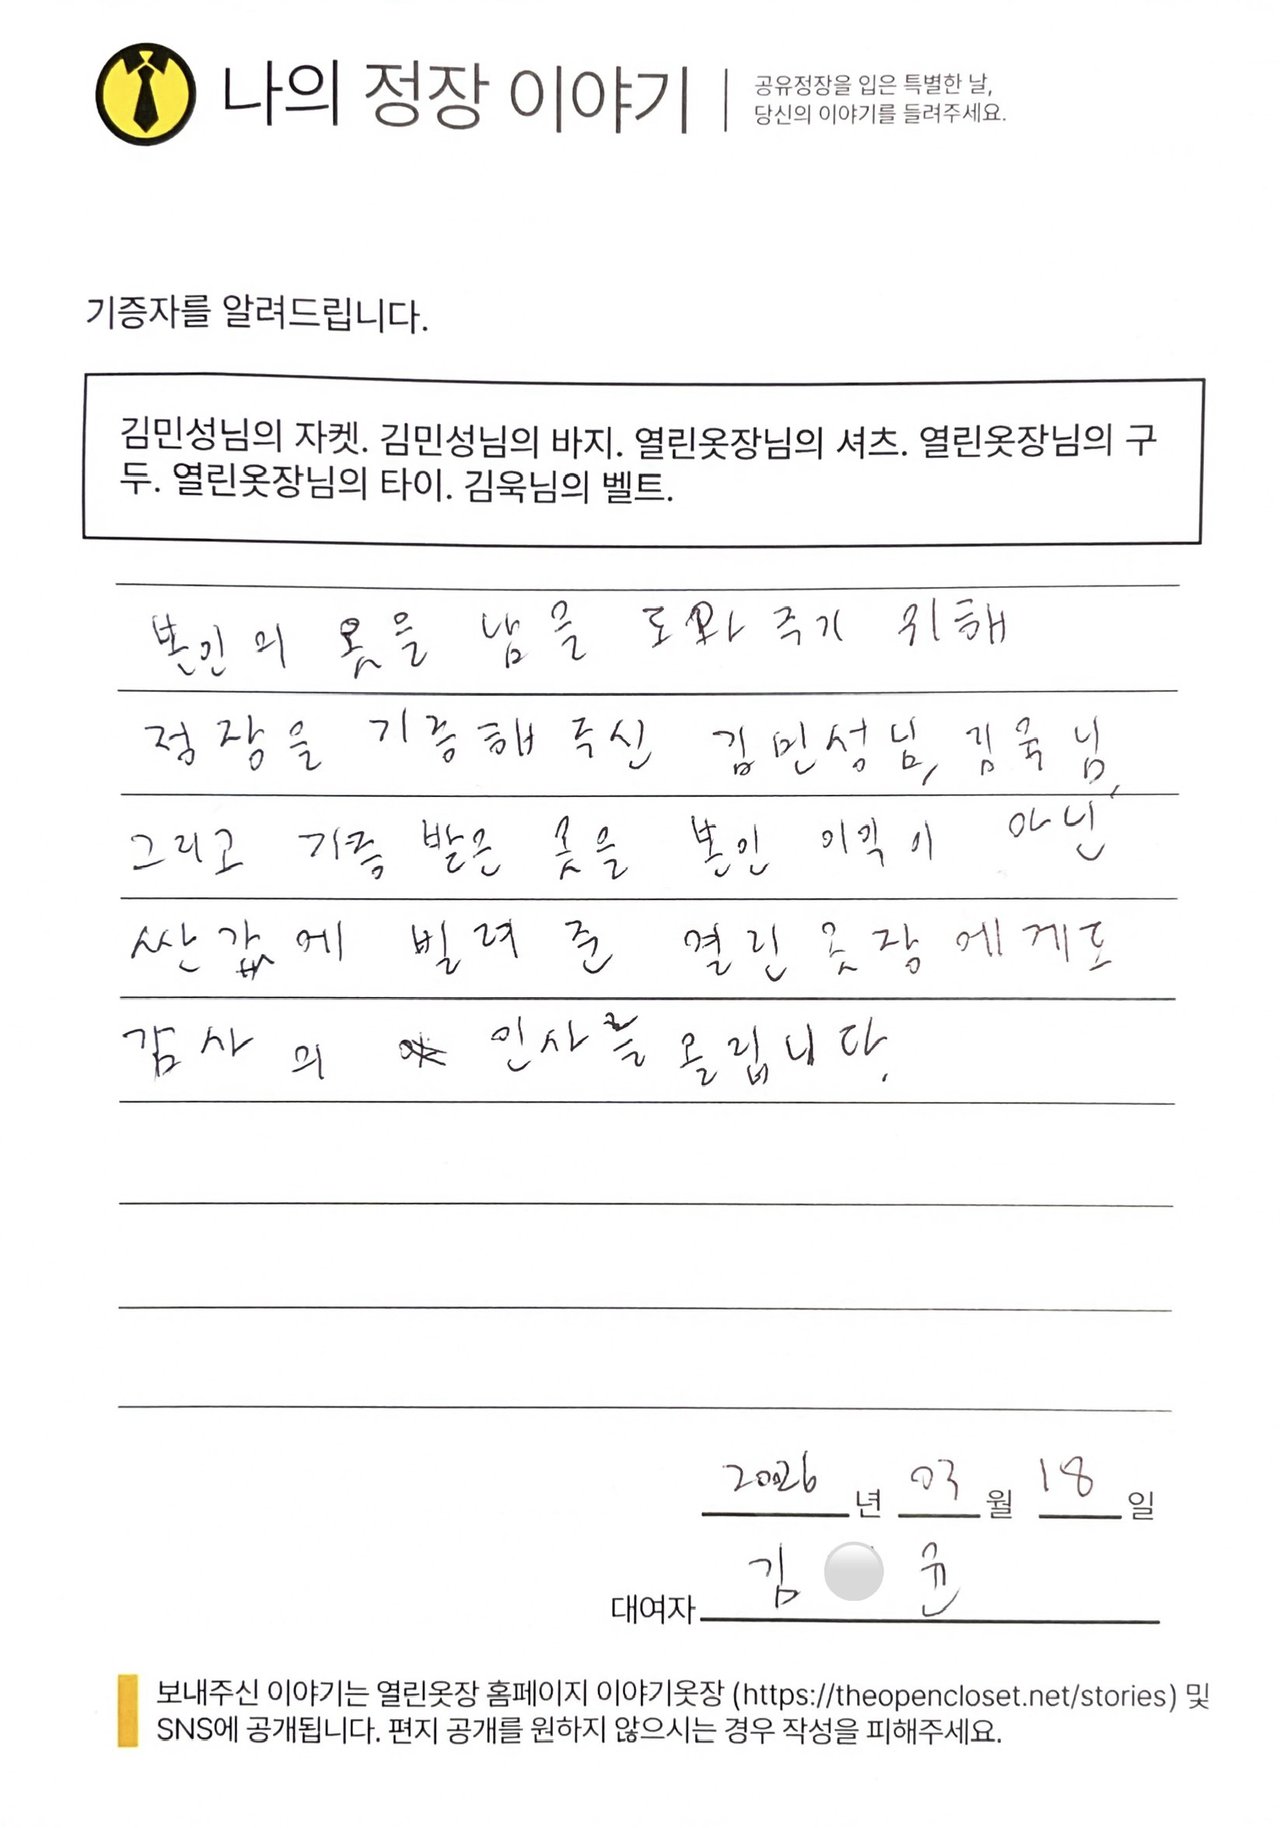 나의 정장 이야기
공유정장을 입은 특별한 날,
당신의 이야기를 들려주세요.
기증자를 알려드립니다.
김민성님의 자켓. 김민성님의 바지. 열린옷장님의 셔츠. 열린옷장님의 구
두. 열린옷장님의 타이. 김욱님의 벨트.
본인의 옷을 남을 도와주기 위해
정장을 기증해주신 김민성님, 김욱님,
그리고 기증 받은 옷을 본인 이익이 아닌
싼 값에 빌려준 열린옷장에게도
감사의 인사를 올립니다.
2026년 03월 18일
대여자 김 윤
보내주신 이야기는 열린옷장 홈페이지 이야기옷장 (https://theopencloset.net/stories) 및
SNS에 공개됩니다. 편지 공개를 원하지 않으시는 경우 작성을 피해주세요.